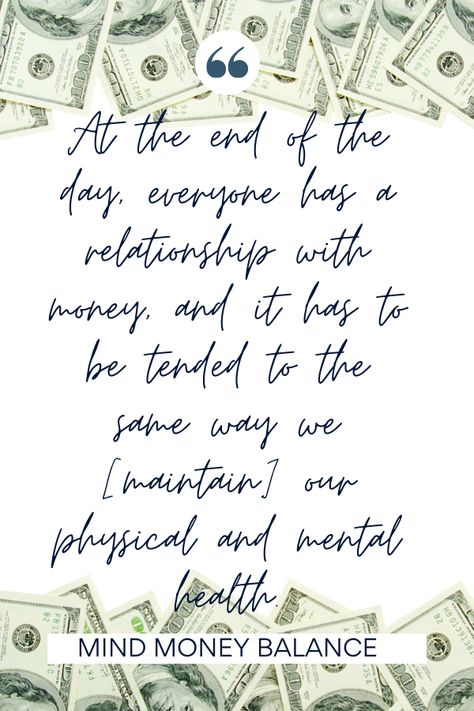 “
At the end of the
day, everyone has a
relationship with
money, and it has to
be tended to the
same way we
[maintain] our
physical and mental
health.
MIND MONEY BALANCE